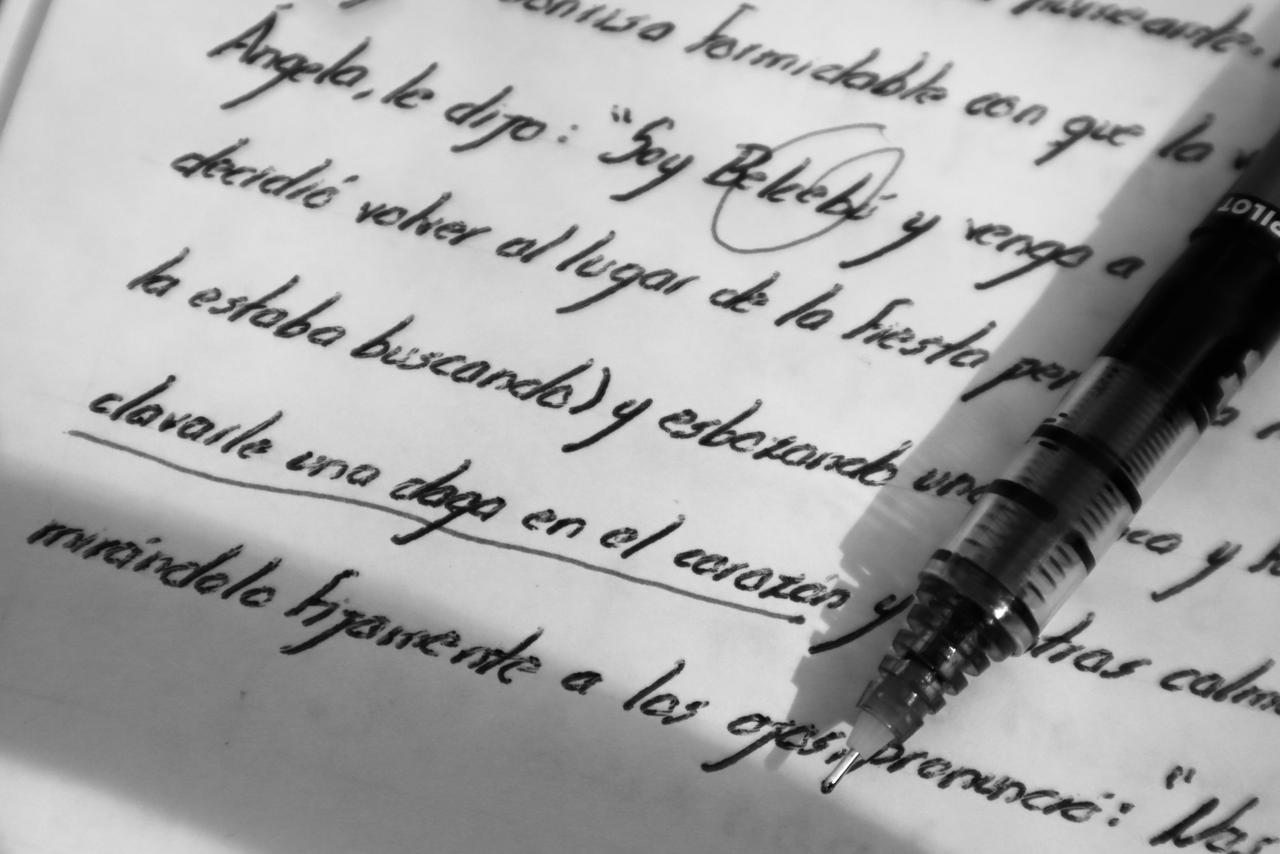 humeante.
formidable con que la
Ángela, le dijo: "Soy Belcebú y vengo a
decidió volver al lugar de la fiesta per
la estaba buscando) y esbozando una
clavarle una daga en el corazón y tras calm
mirándolo fijamente a los ojos pronunció: "Nos
PILOT